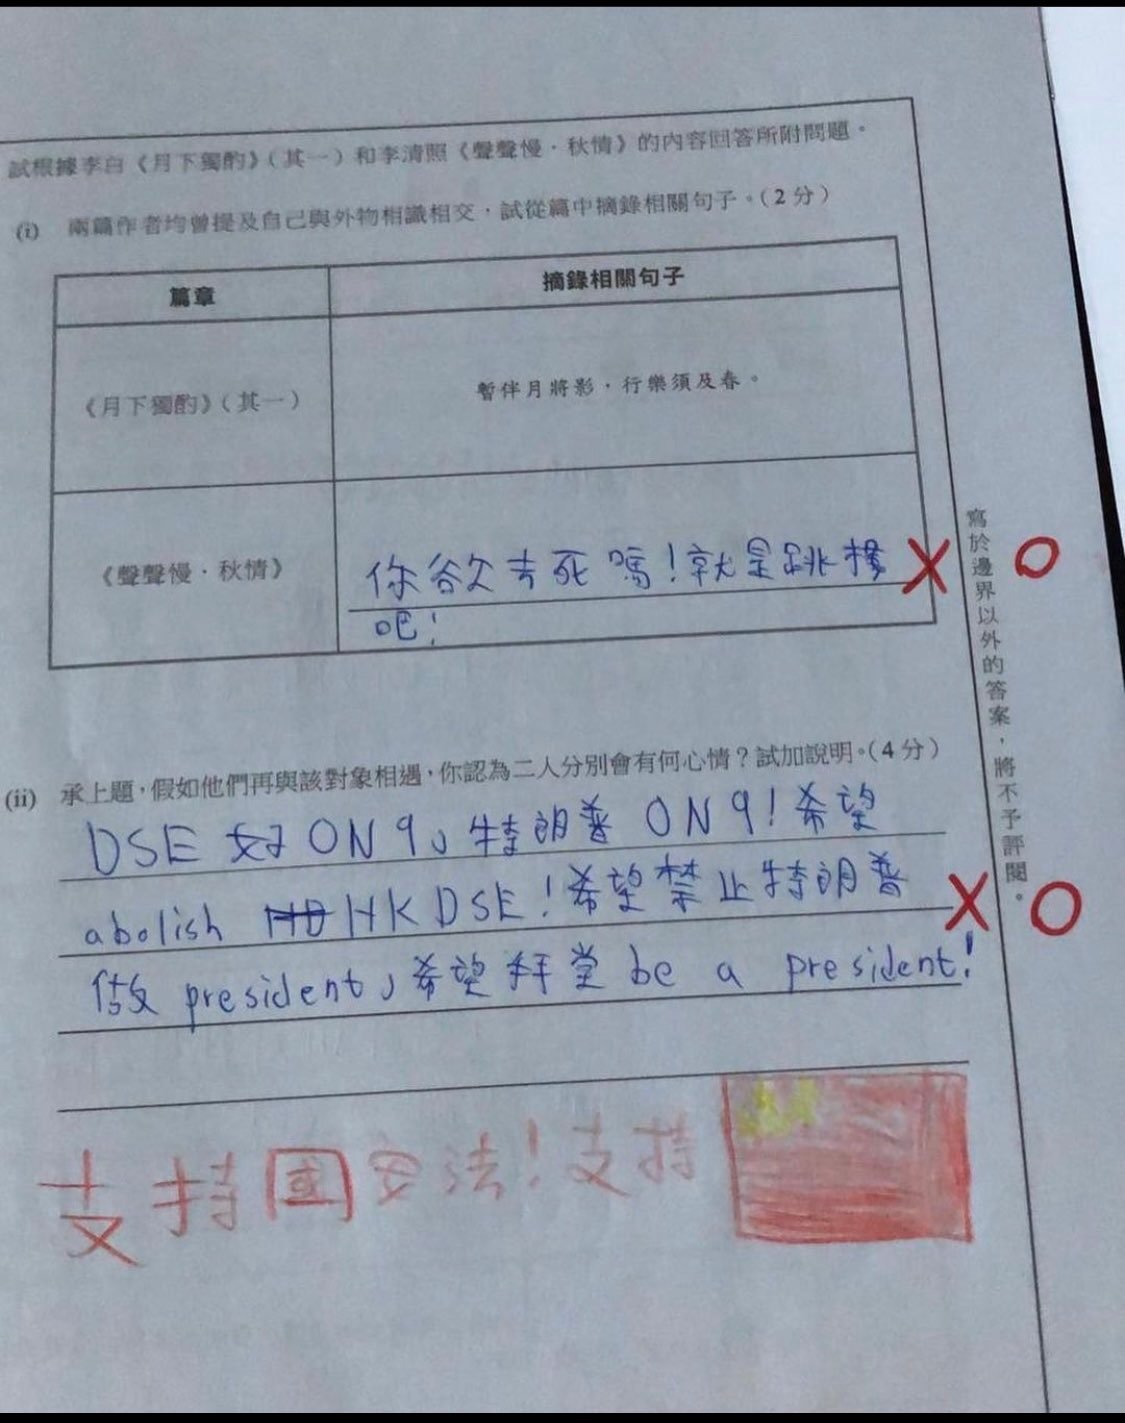 試根據李白《月下獨酌》(其一)和李清照《聲聲慢．秋情》的內容回答所附問題。
(i) 兩篇作者均曾提及自己與外物相識相交，試從篇中摘錄相關句子。(2 分)
篇章 摘錄相關句子
《月下獨酌》(其一) 暫伴月將影，行樂須及春。
《聲聲慢．秋情》 你欲去死嗎!就是跳樓
吧!
X O
(ii) 承上題，假如他們再與該對象相遇，你認為二人分別會有何心情？試加說明。(4 分)
DSE 好 ON 9，特朗普 ON 9!希望
abolish HKDSE!希望禁止特朗普
X O
做 president，希望拜登 be a president!
支持國安法!支持
寫於邊界以外的答案，將不予評閱。